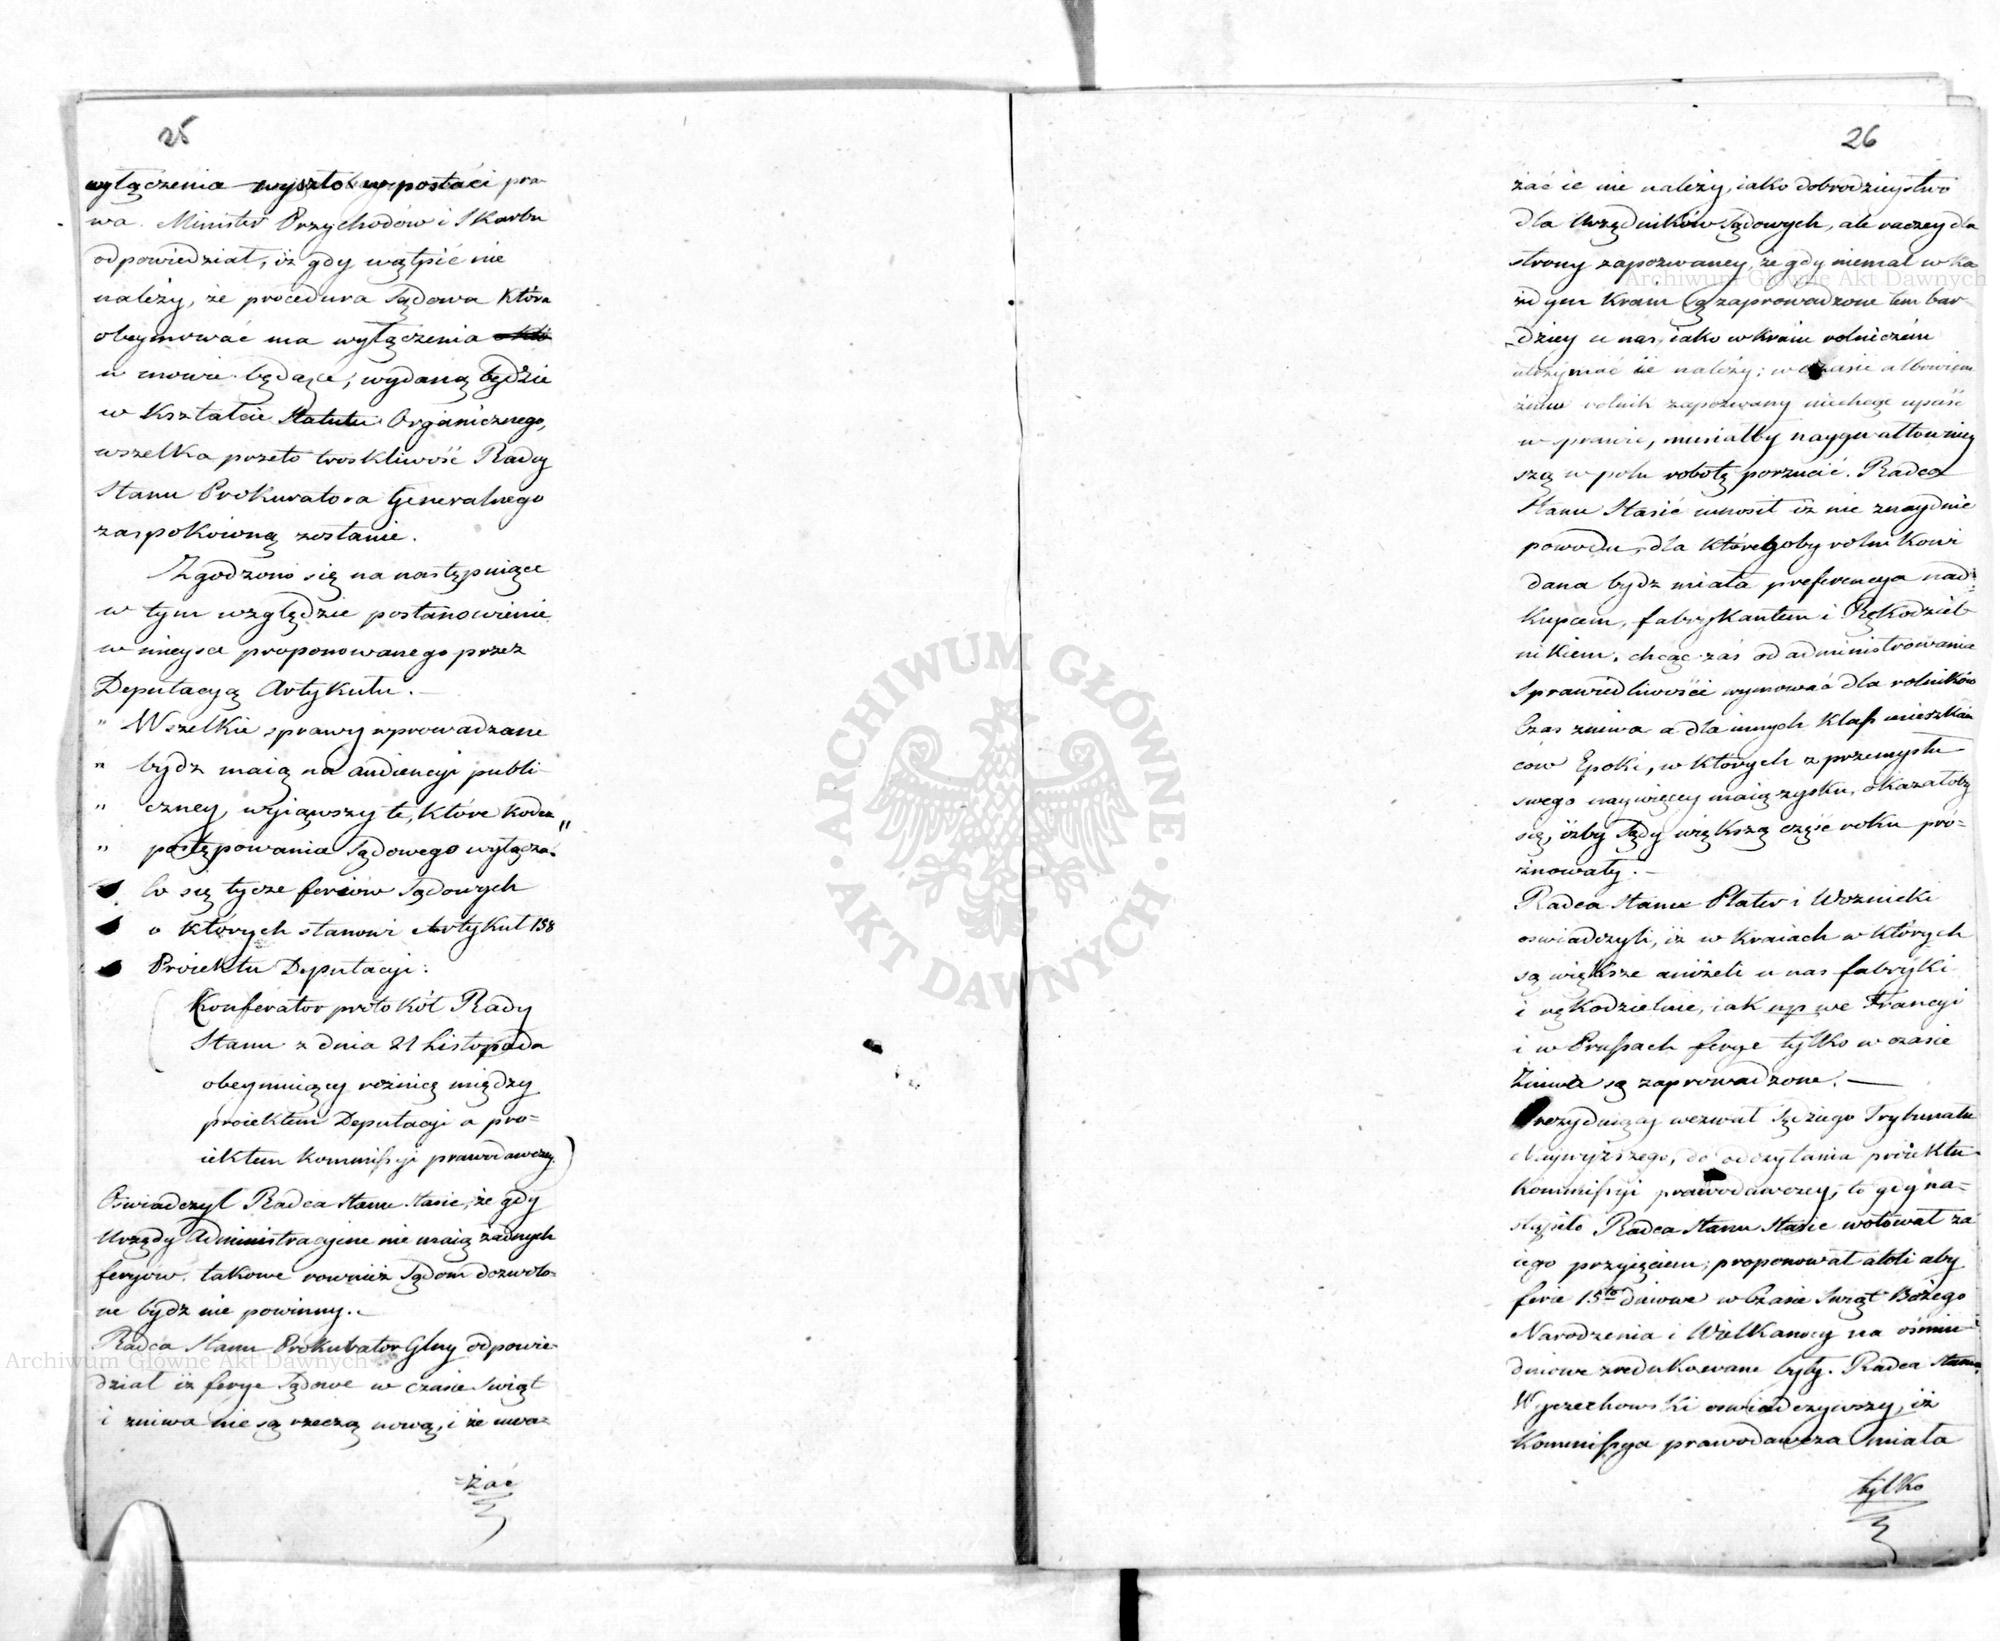 25
wyłączenia wyszło w postaci pra
wa. Minister Przychodów i Skarbu
odpowiedział, iż gdy wątpić nie
należy, że procedura Sądowa która
obeymować ma wyłączenia
w mowie będące, wydaną będzie
w kształcie Statutu Organicznego,
wszelka przeto troskliwość Radcy
Stanu Prokuratora Generalnego
zaspokoioną zostanie.
Zgodzono się na następuiące
w tym względzie postanowienie
w mieysce proponowanego przez
Deputacyą Artykułu. —
" Wszelkie sprawy wprowadzane
" bydz maią na audiencyi publi-
" czney, wyiąwszy te, które kodex "
" postępowania Sądowego wyłącza.
Co się tycze feriów Sądowych
o których stanowi Artykuł 158
Proiektu Deputacyi:
(Konferatur protokół Rady
Stanu z dnia 21 Listopada
obeymuiący różnicę między
proiektem Deputacyi a pro=
iektem Kommissyi prawodawczey.)
Oświadczył Radca Stanu Stasic, że gdy
Urzędy Administracyine nie maią żadnych
feryów, takowe rownież Sądom dozwolo-
ne bydz nie powinny. —
Radca Stanu Prokurator Glny odpowie-
dział iż ferye Sądowe w czasie Swiąt
i zniwa nie są rzeczą nową, i że uwa=
=żać
26
żać ie nie należy, iako dobrodzieystwo
dla Urzędników Sądowych, ale raczey dla
strony zapozwaney, że gdy niemal w ka
żdym Kraiu są zaprowadzone tem bar-
dziey u nas, iako w kraiu rolniczém
utrzymać ie należy; w czasie albowiem
żniw rolnik zapozwany niechcąc upaść
w sprawie, musiałby naygwałtowniey
szą w polu robotę porzucić. Radca
Stanu Stasic wnosił iż nie znayduie
powodu, dla któregoby rolnikowi
dana bydz miała preferencya nad
Kupcem, fabrykantem i Rękodziel-
nikiem, chcąc zaś od administrowania
Sprawiedliwości wymować dla rolników
Czas zniwa a dla innych klass mieszkań
ców Epoki, w których z przemysłu
swego naywięcey maią zysku, okazałoby
się, iżby Sądy większą część roku pro=
żnowały. —
Radca Stanu Plater i Woznicki
oswiadczyli, iż w kraiach w których
są większe aniżeli u nas fabryki
i rękodzielnie, iak np we Francyi
i w Prussach ferye tylko w czasie
Zniwa są zaprowadzone. —
Prezyduiący wezwał Sędziego Trybunału
Naywyższego, do odczytania proiektu
Kommissyi prawodawczey, to gdy na=
stąpiło Radca Stanu Stasic wotował za
iego przyięciem; proponował atoli aby
ferie 15to dniowe w Czasie Swiąt Bożego
Narodzenia i Wielkanocy na ośmiu-
dniowe zredukowane były. Radca Stanu
Wyczechowski oswiadczywszy, iż
Kommissya prawodawcza miała
tylko
ARCHIWUM GŁÓWNE
AKT DAWNYCH
Archiwum Główne Akt Dawnych
Archiwum Główne Akt Dawnych